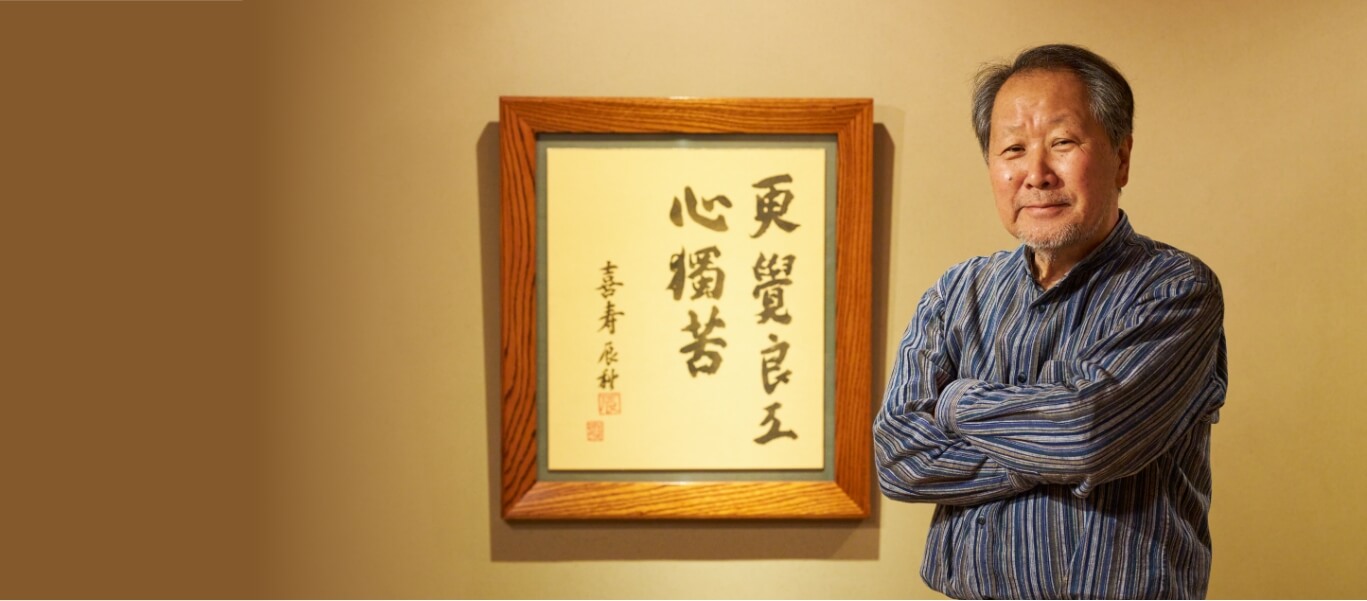 更覺良工
心獨苦
喜寿辰村